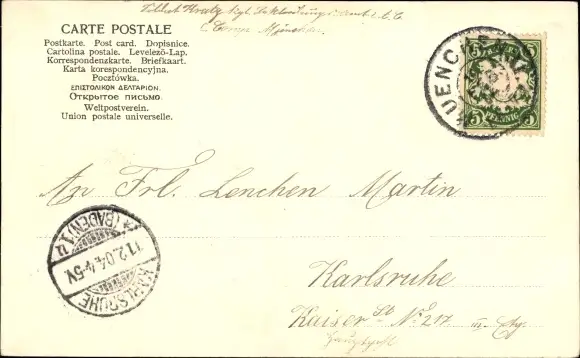 CARTE POSTALE
Postkarte. Post card. Dopisnice.
Cartolina postale. Levelező-Lap.
Korrespondenzkarte. Briefkaart.
Karta korespondencyjna.
Pocztówka.
ΕΠΙΣΤΟΛΙΚΟΝ ΔΕΛΤΑΡΙΟΝ.
Открытое письмо.
Weltpostverein.
Union postale universelle.
MUENCHEN
BAYERN
5 PFENNIG 5
An Frl. Lenchen Martin
(BADEN)
11.2.04.4-5V.
KARLSRUHE
Karlsruhe
Kaiser Str. No 217 III